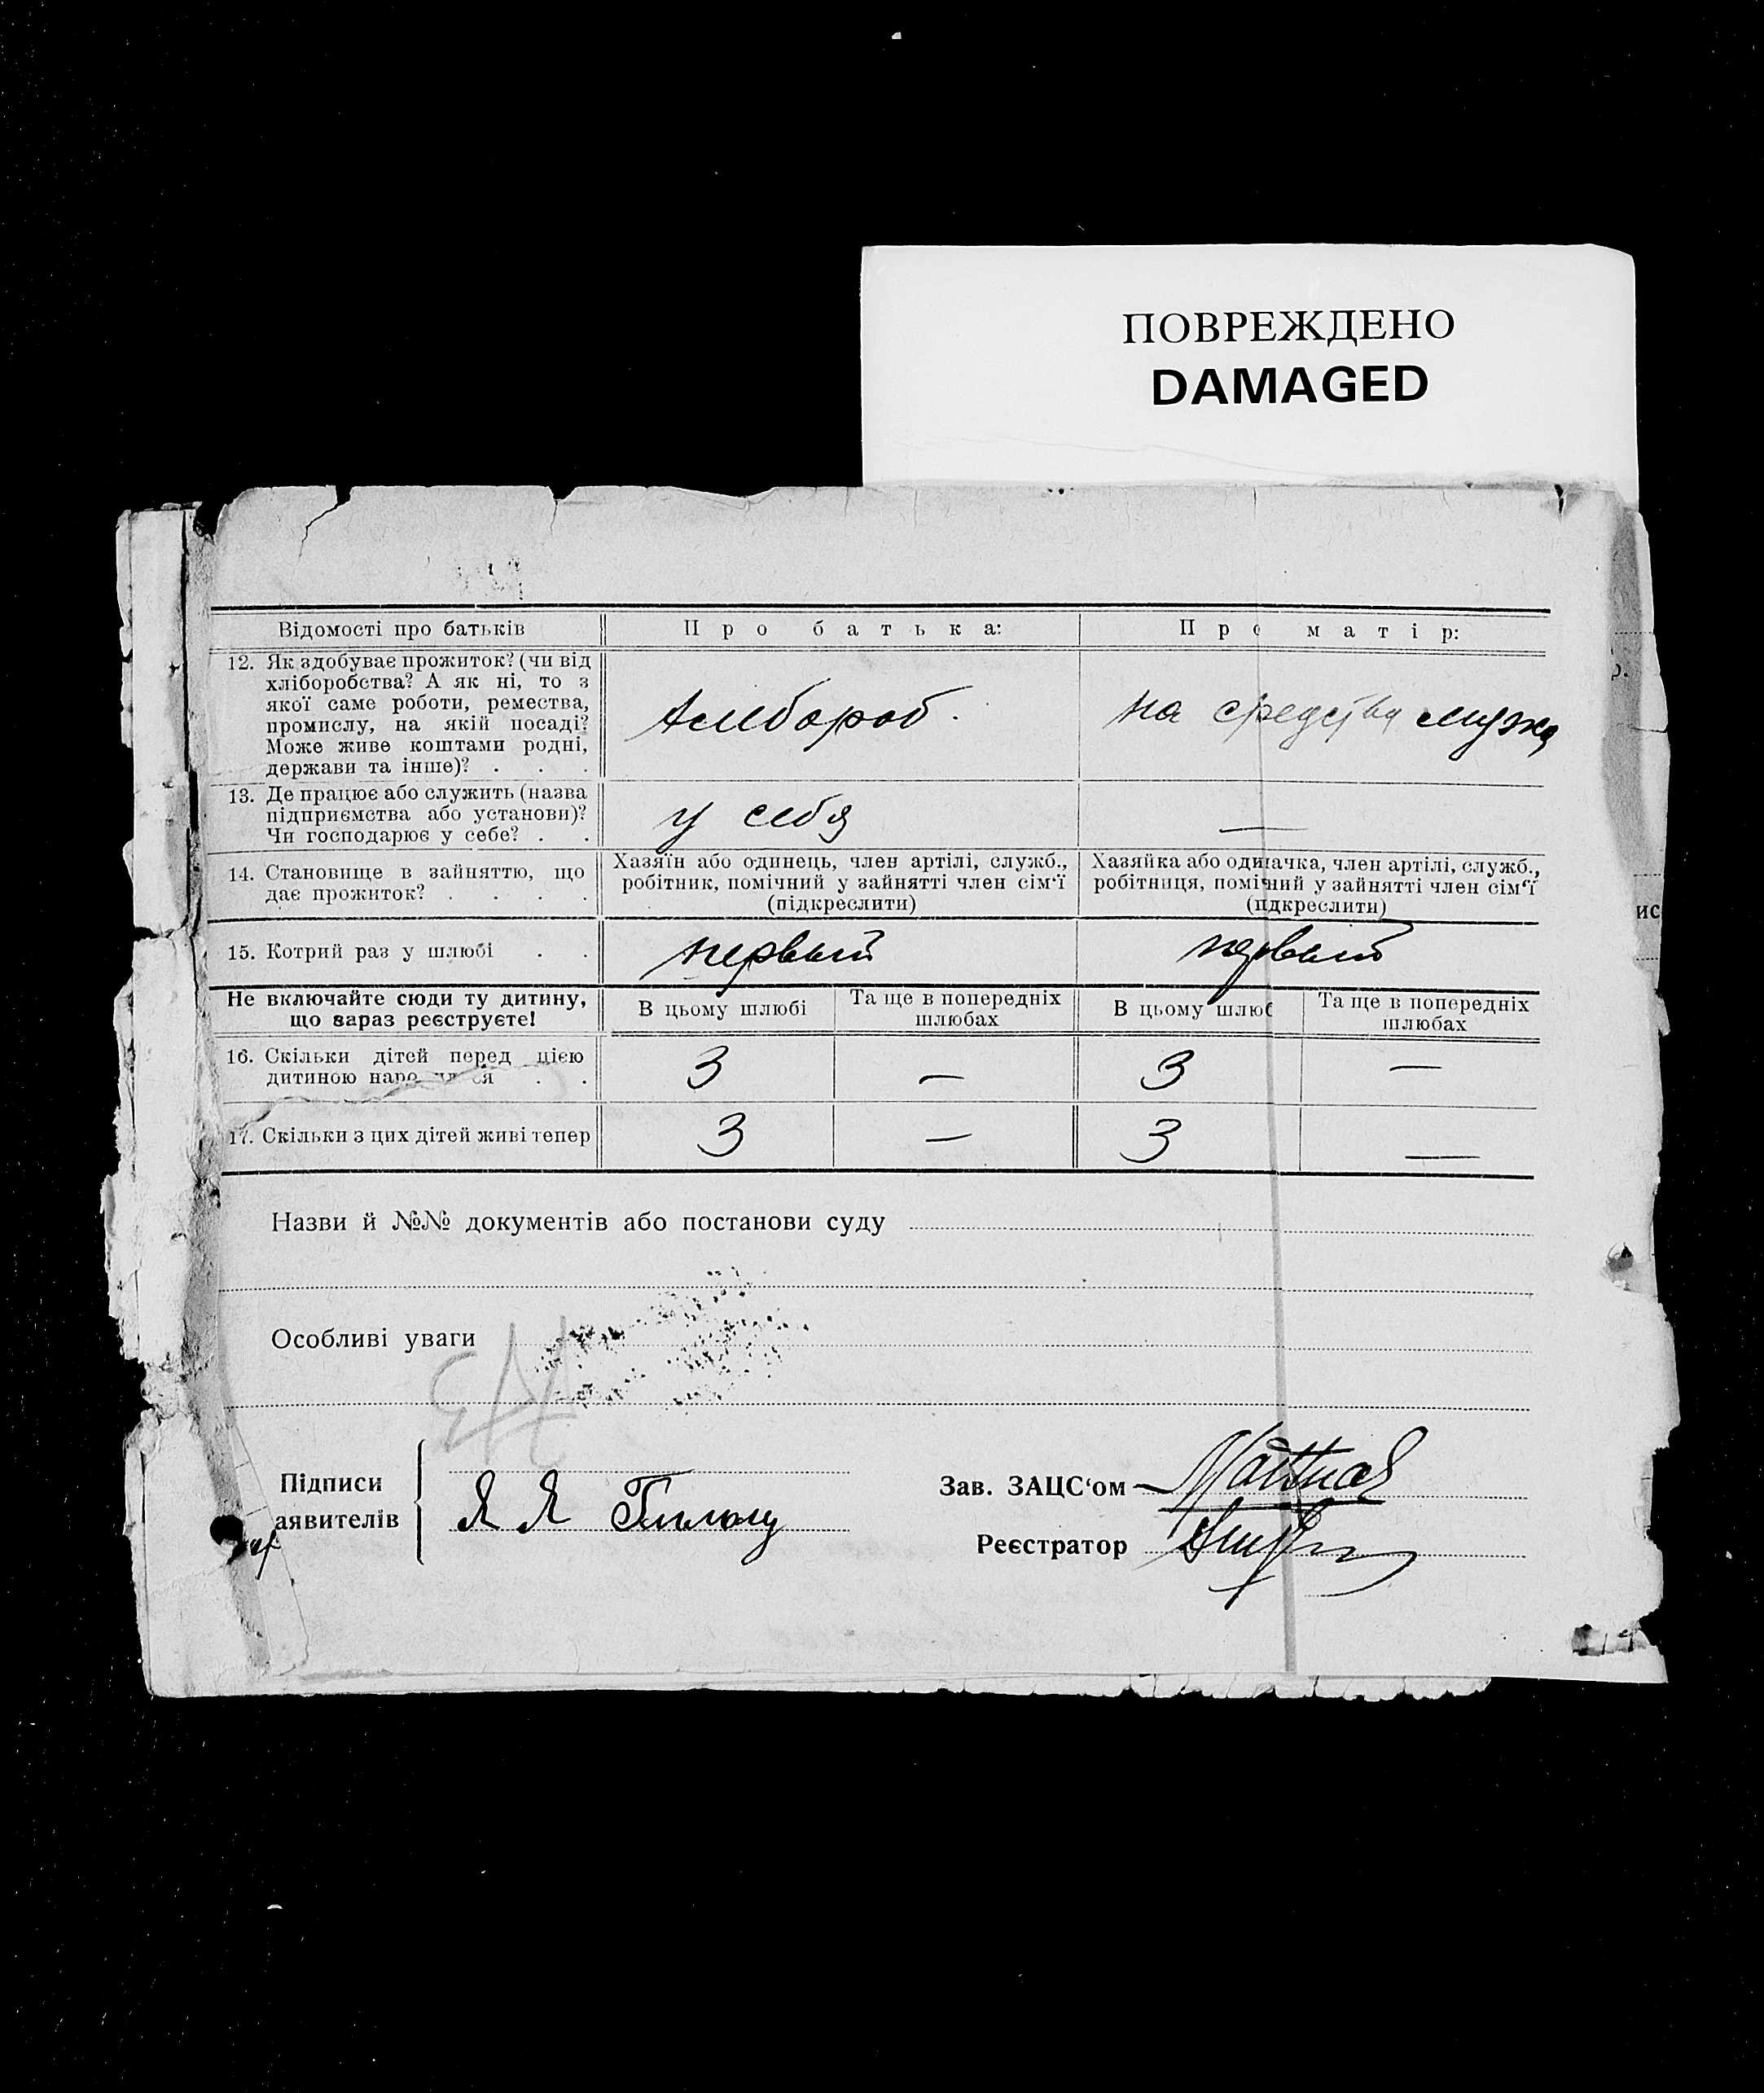 ПОВРЕЖДЕНО
DAMAGED
Відомості про батьків
Про батька:
Про матір:
12. Як здобуває прожиток? (чи від
хліборобства? А як ні, то з
якої саме роботи, ремества,
промислу, на якій посаді?
Може живе коштами родні,
держави та інше)? . . .
хлебороб.
на средства мужа
13. Де працює або служить (назва
підприємства або установи)?
Чи господарює у себе? . .
у себя
—
14. Становище в зайняттю, що
дає прожиток? . . . .
Хазяїн або одинець, член артілі, служб.,
робітник, помічний у зайнятті член сім'ї
(підкреслити)
Хазяйка або одиначка, член артілі, служб.,
робітниця, помічний у зайнятті член сім'ї
(підкреслити)
ис
15. Котрий раз у шлюбі . .
первый
первый
Не включайте сюди ту дитину,
що зараз реєструєте!
В цьому шлюбі
Та ще в попередніх
шлюбах
В цьому шлюб
Та ще в попередніх
шлюбах
16. Скільки дітей перед цією
дитиною наро
3
—
3
—
17. Скільки з цих дітей живі тепер
3
—
3
—
Назви й №№ документів або постанови суду
Особливі уваги
Підписи
аявителів
Я Я
Зав. ЗАЦС'ом
Реєстратор